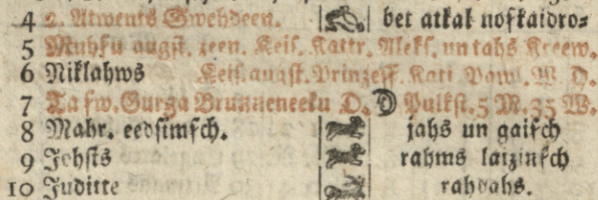 4 2. Atwents Swehdeen. bet atkal noskaidro=
5 Muhsu augst. zeen. Keis. Kattr. Aleks. un tahs Kreew.
6 Niklahws Keis. augst. Prinzess. Kati Pawl. W. D.
7 Ta sw. Gurga Brunneneeku D. Pulkst. 5 M. 35 W.
8 Mahr. eedsimsch. jahs un gaisch
9 Jehsts rahms laizinsch
10 Juditte rahdahs.